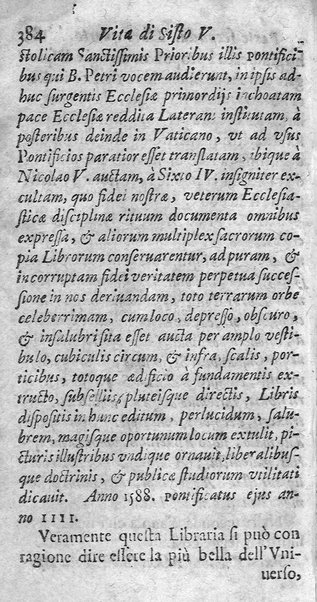 384 Vita di Sisto V.
stolicam Sanctissimis Prioribus illis pontifici
bus qui B. Petri vocem audierunt, in ipsis ad-
huc surgentis Ecclesiæ primordijs inchoatam
pace Ecclesiæ reddita Lateran: institutam, à
posteribus deinde in Vaticano, vt ad vsus
Pontificios paratior esset translatam, ibique à
Nicolao V. auctam, à Sixto IV. insigniter ex-
cultam, quo fidei nostræ, veterum Ecclesia-
sticæ disciplinæ rituum documenta omnibus
expressa, & aliorum multiplex sacrorum co-
pia Librorum conseruarentur, ad puram, &
incorruptam fidei veritatem perpetua succes-
sione in nos deriuandam, toto terrarum orbe
celeberrimam, cum loco, depresso, obscuro,
& insalubri sita esset aucta per amplo vesti-
bulo, cubiculis circum, & infra, scalis, por-
ticibus, totoque ædificio à fundamentis ex-
tructo, subsellijs pluteisque directis, Libris
dispositis in hunc editum, perlucidum, salu-
brem, magisque oportunum locum extulit, pi-
cturis illustribus vndique ornauit, liberalibus-
que doctrinis, & publicæ studiorum vtilitati
dicauit. Anno 1588. pontificatus ejus an-
no IIII.
Veramente questa Libraria si può con
ragione dire essere la più bella dell'Vni-
uerso,